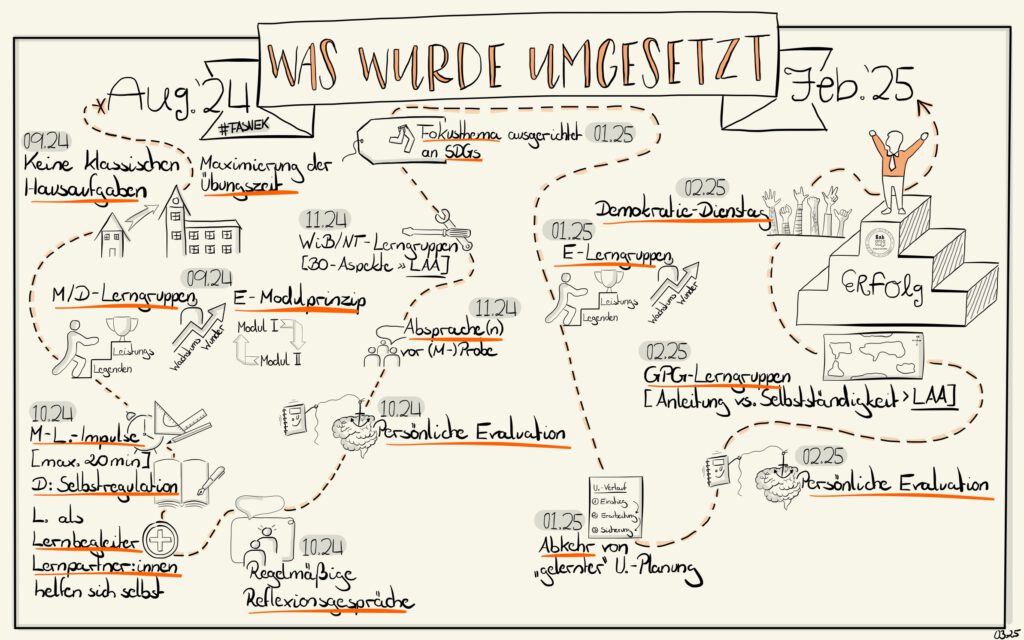 WAS WURDE UMGESETZT
Aug. '24
#TASNEK
Feb. '25
09.24
Keine klassischen
Hausaufgaben
Maximierung der
Übungszeit
09.24
M/D-Lerngruppen
Leistungs
Legenden
Wachstums
Wunder
E-Modulprinzip
Modul I
Modul II
10.24
M-L.-Impulse
[max. 20min]
D: Selbstregulation
L. als
Lernbegleiter
Lernpartner:innen
helfen sich selbst
10.24
Regelmäßige
Reflexionsgespräche
10.24
Persönliche Evaluation
11.24
Absprache(n)
vor (M-)Probe
11.24
WiB/NT-Lerngruppen
[BO-Aspekte » LAA]
Fokusthema ausgerichtet
an SDGs
01.25
01.25
E-Lerngruppen
Leistungs
Legenden
Wachstums
Wunder
U.-Verlauf
① Einstieg
② Erarbeitung
③ Sicherung
01.25
Abkehr von
„gelernter" U.-Planung
02.25
Persönliche Evaluation
02.25
GPG-Lerngruppen
[Anleitung vs. Selbstständigkeit > LAA]
02.25
Demokratie-Dienstag
ERfolg
03.25